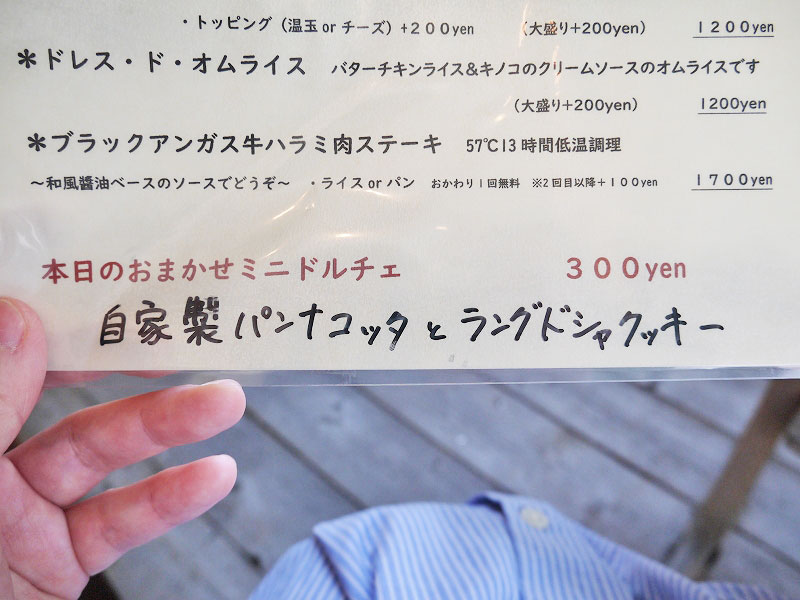 ・トッピング（温玉 or チーズ）+２００yen （大盛り+200yen） １２００yen
＊ドレス・ド・オムライス バターチキンライス＆キノコのクリームソースのオムライスです
（大盛り+200yen） 1200yen
＊ブラックアンガス牛ハラミ肉ステーキ 57℃13時間低温調理
〜和風醬油ベースのソースでどうぞ〜 ・ライス or パン おかわり１回無料 ※２回目以降＋１００yen １７００yen
本日のおまかせミニドルチェ ３００yen
自家製パンナコッタとラングドシャクッキー